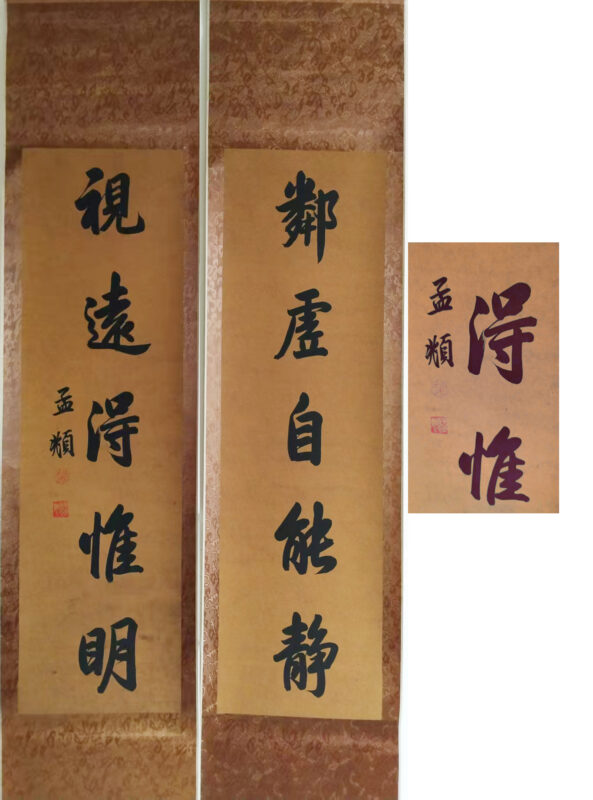 鄰虚自能静
視遠得惟明
孟頫
得惟
孟頫